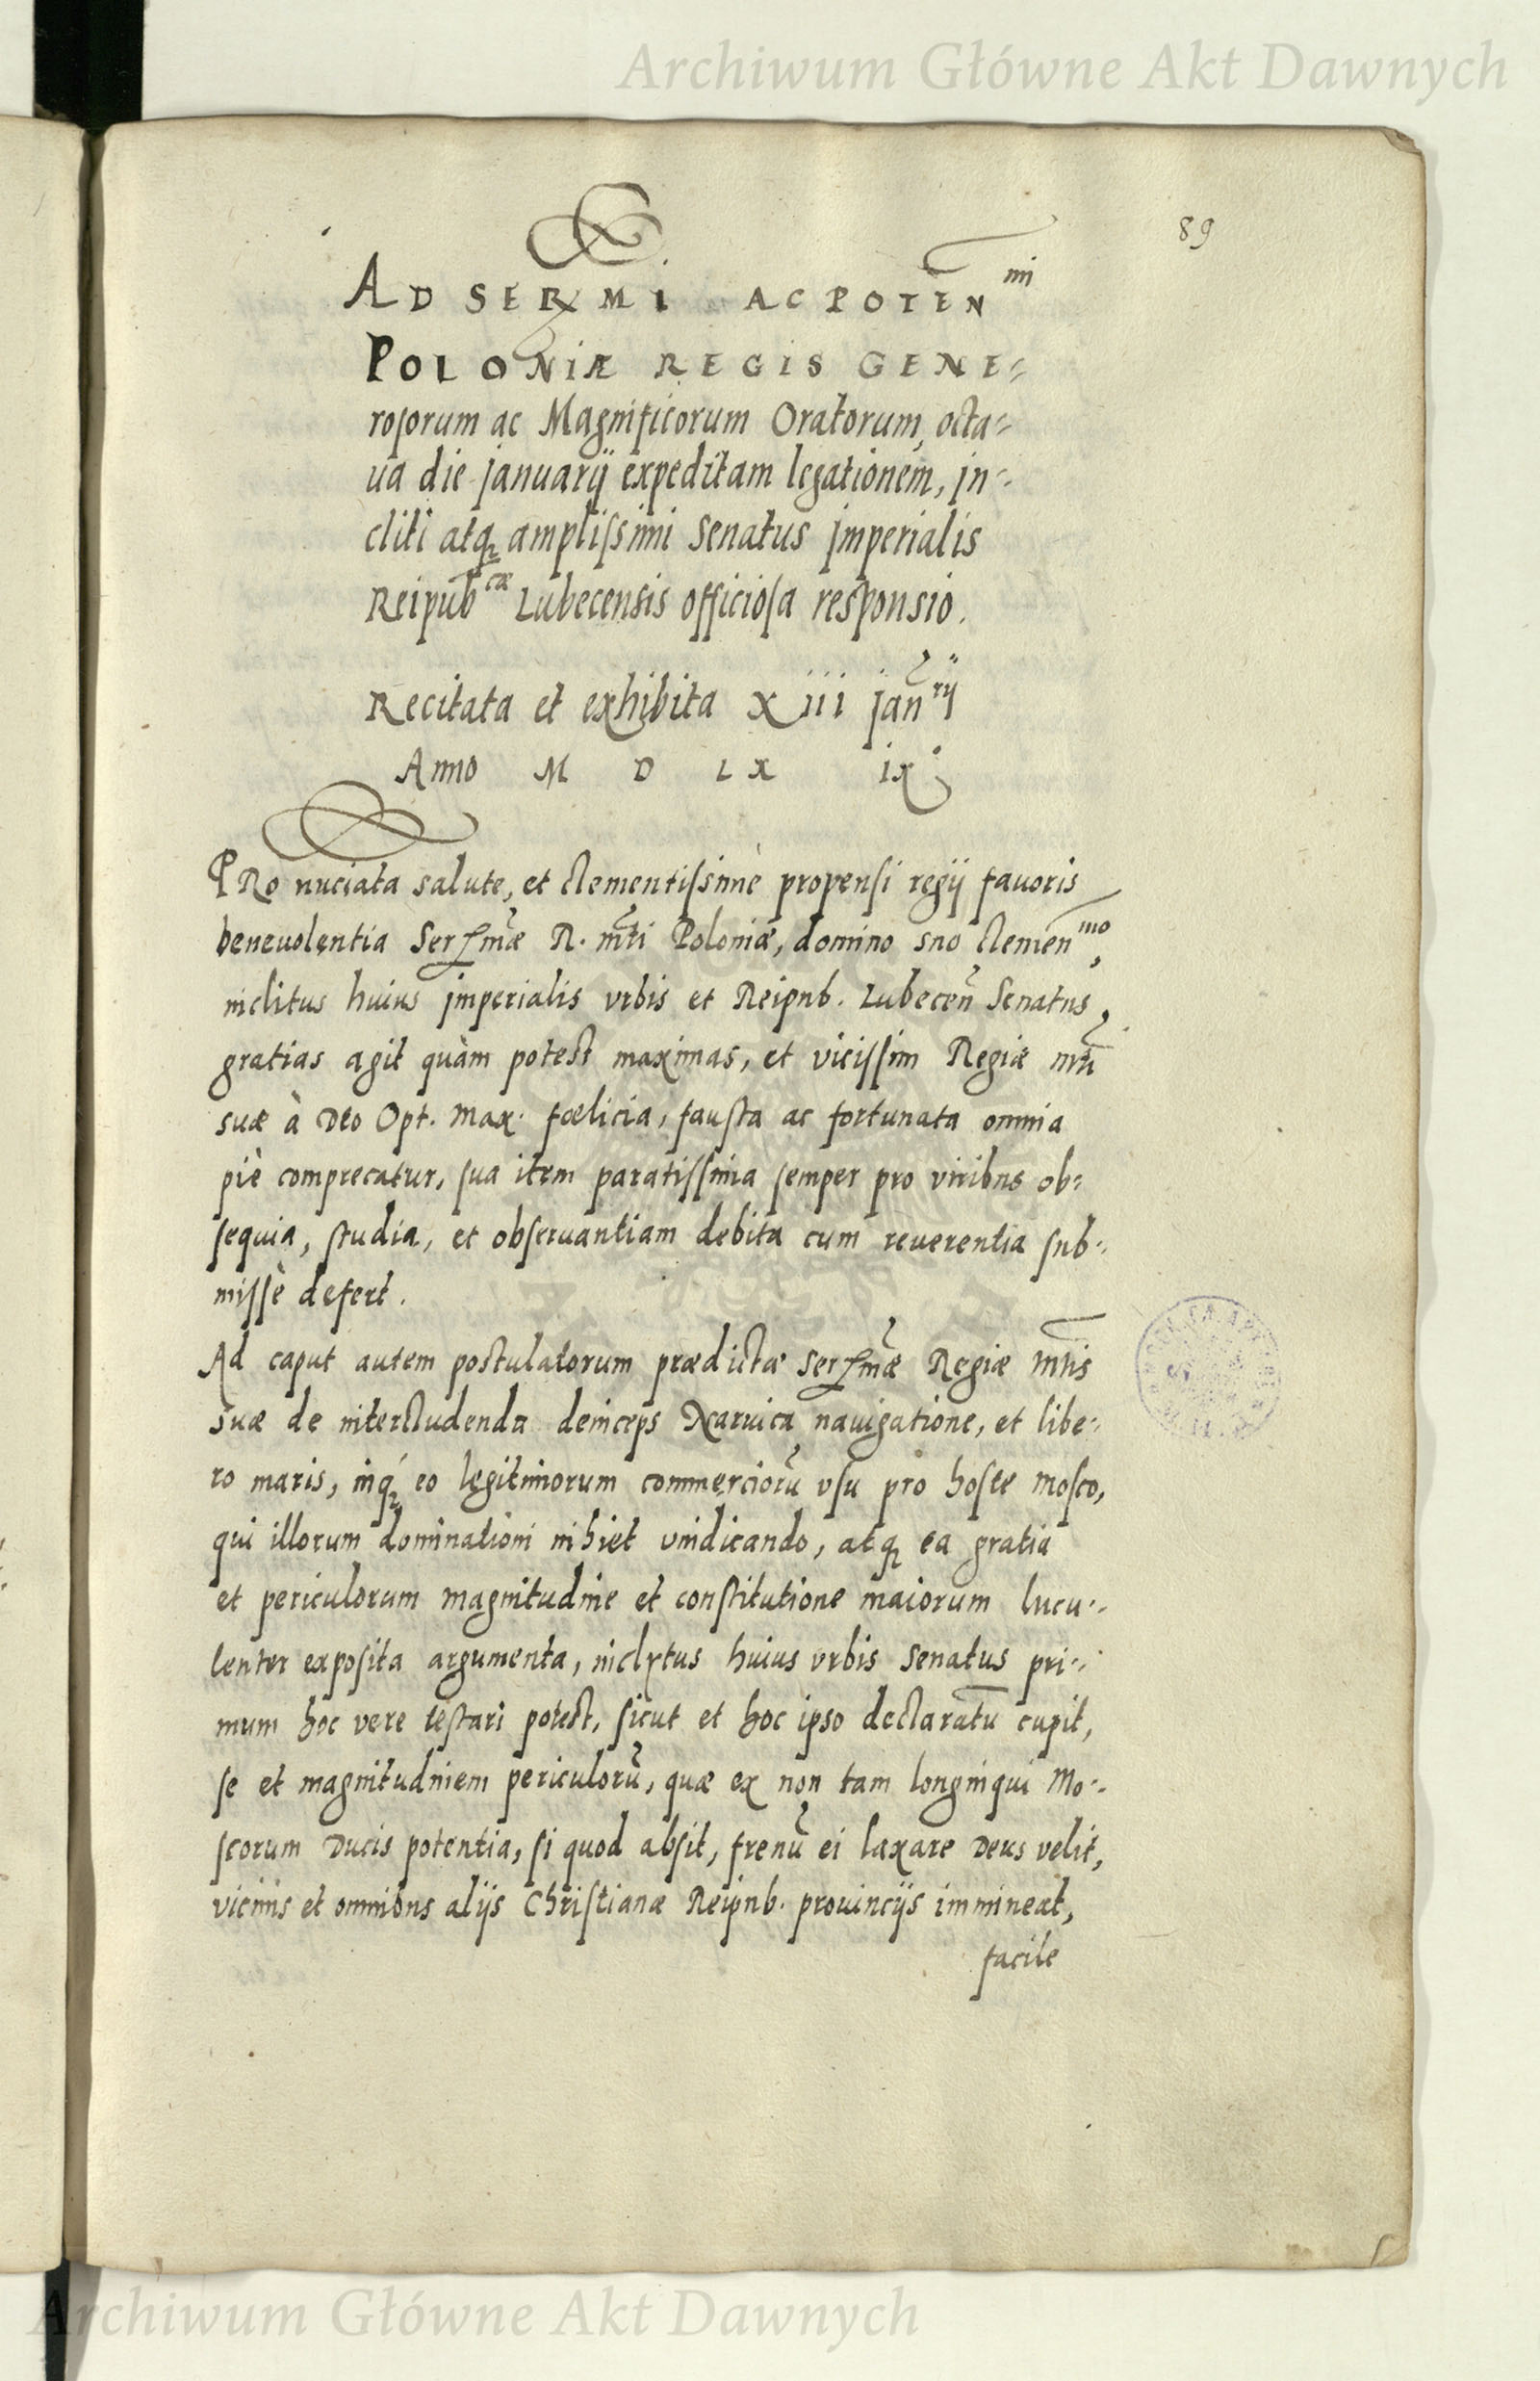 Archiwum Główne Akt Dawnych
89
AD SERMI AC POTEN^mi
POLONIÆ REGIS GENE=
rosorum ac Magnificorum Oratorum, octa=
ua die januarij expeditam legationem, jn=
cliti atq; amplissimi Senatus jmperialis
Reipub^cæ Lubecensis officiosa responsio.
Recitata et exhibita Xiii jan^rij
Anno M D LX ix
PRo nuciata salute, et clementissimè propensi regij fauoris
beneuolentia Sermæ R. mti Poloniæ, domino sno clemen^mo,
inclitus huius jmperialis vrbis et Reipub. Lubecen Senatus,
gratias agit quàm potest maximas, et vicissim Regiæ mti
suæ à Deo Opt. Max. fœlicia, fausta ac fortunata omnia
piè comprecatur, sua item paratissima semper pro viribus ob=
sequia, studia, et obseruantiam debita cum reuerentia sub=
missè defert.
Ad caput autem postulatorum prædictæ Sermæ Regiæ Mtis
suæ de intercludenda deinceps Naruica nauigatione, et libe=
ro maris, inq; eo legitimorum commerciorū vsu pro hoste Mosco,
qui illorum dominationi inhiet vindicando, atq; ea gratia
et periculorum magnitudine et constitutione maiorum lucu=
lenter exposita argumenta, inclytus huius vrbis Senatus pri=
mum hoc vere testari potest, sicut et hoc ipso declaratū cupit,
se et magnitudinem periculorū, quæ ex non tam longinqui Mo=
scorum Ducis potentia, si quod absit, frenū ei laxare Deus velit,
vicinis et omnibus alijs Christianæ Reipub. prouincijs immineat,
facile
Archiwum Główne Akt Dawnych